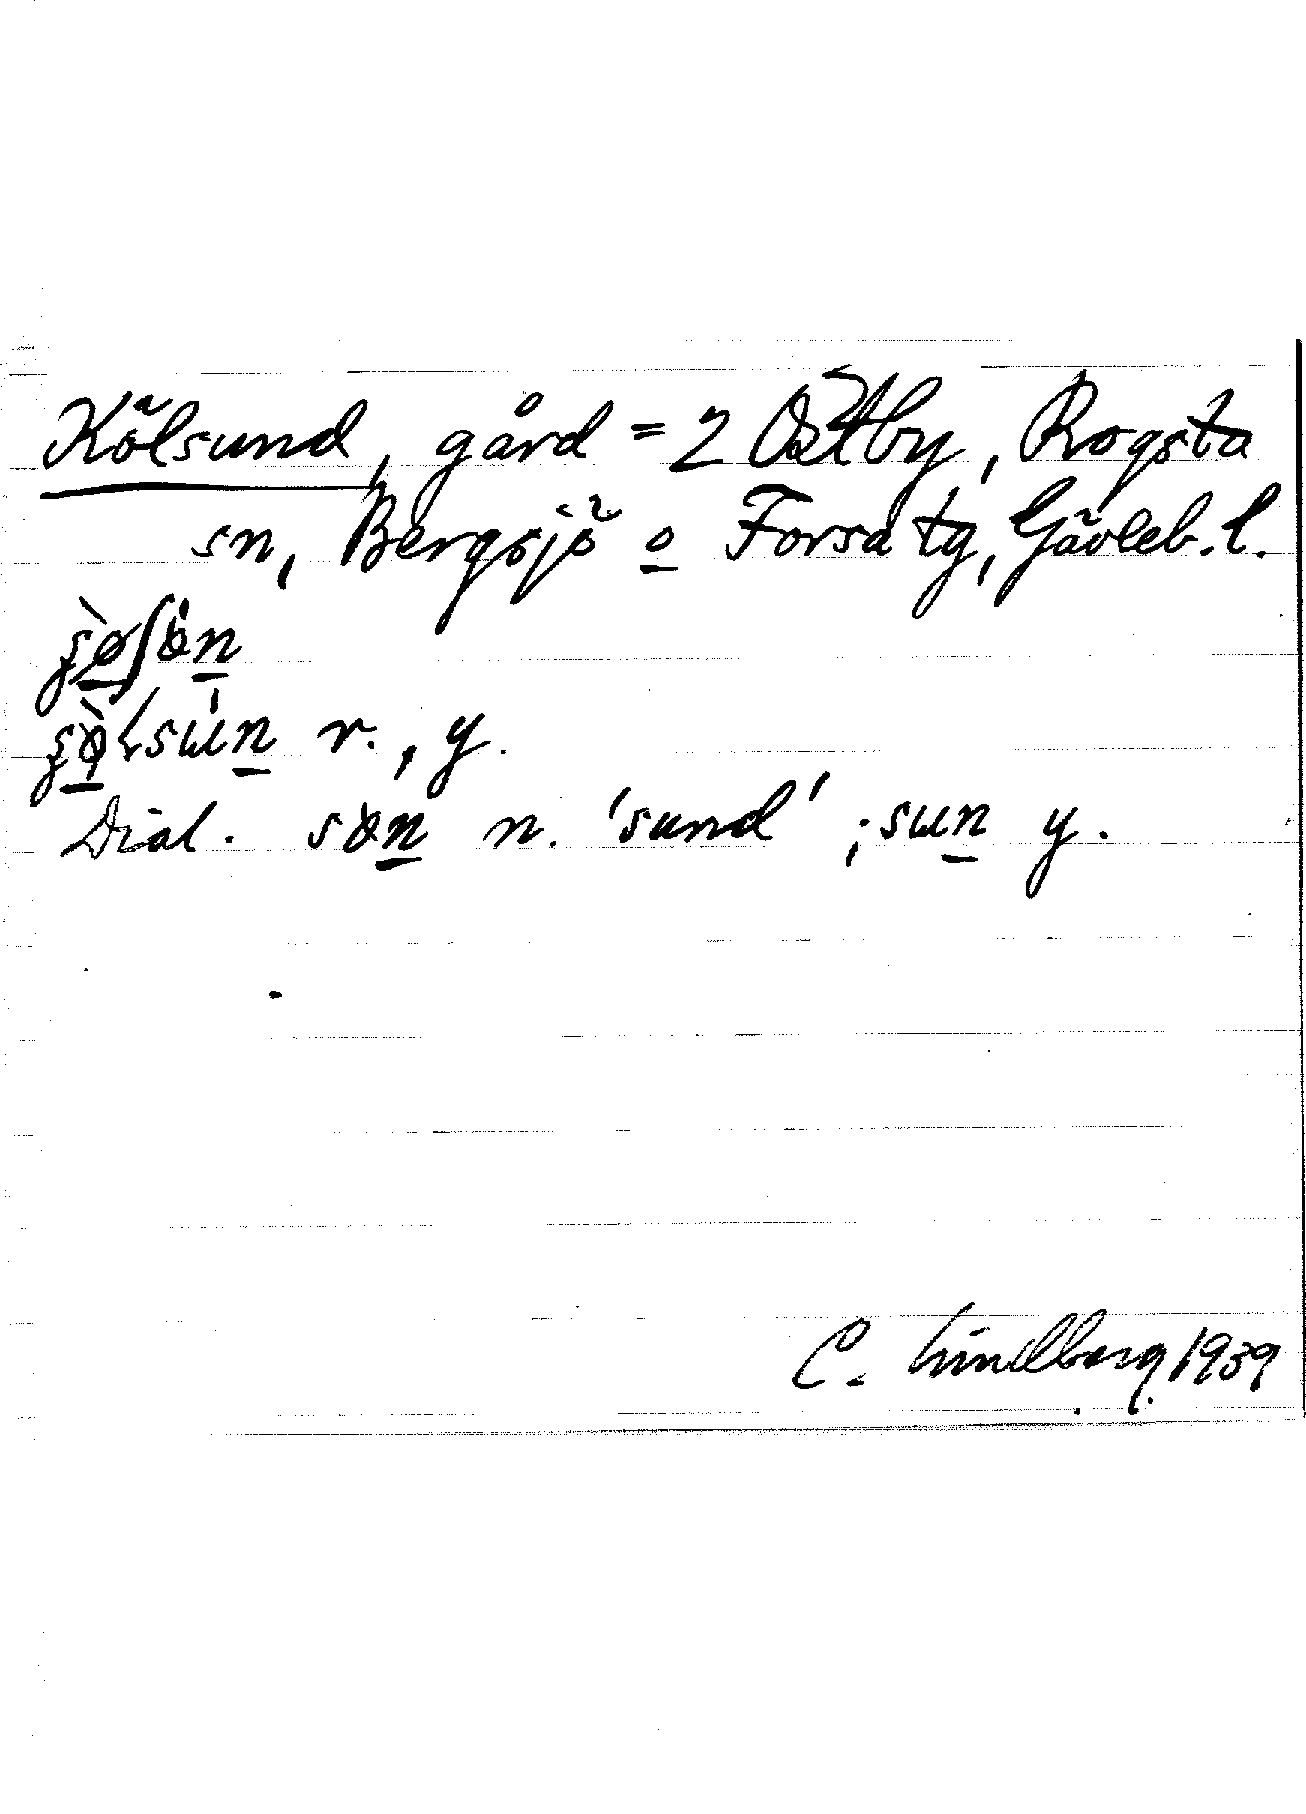 Kölsund, gård = 2 Östby, Rogsta
sn, Bergsjö o Forsa tg, Gävleb. l.
r., y.
Dial. sɵn n. 'sund'; sun y.
C. Lindberg 1939